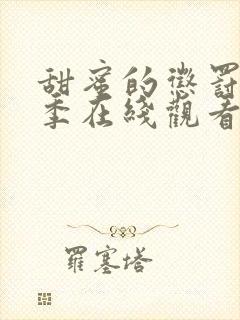 甜蜜的懲罰
季在綫觀看
羅塞塔